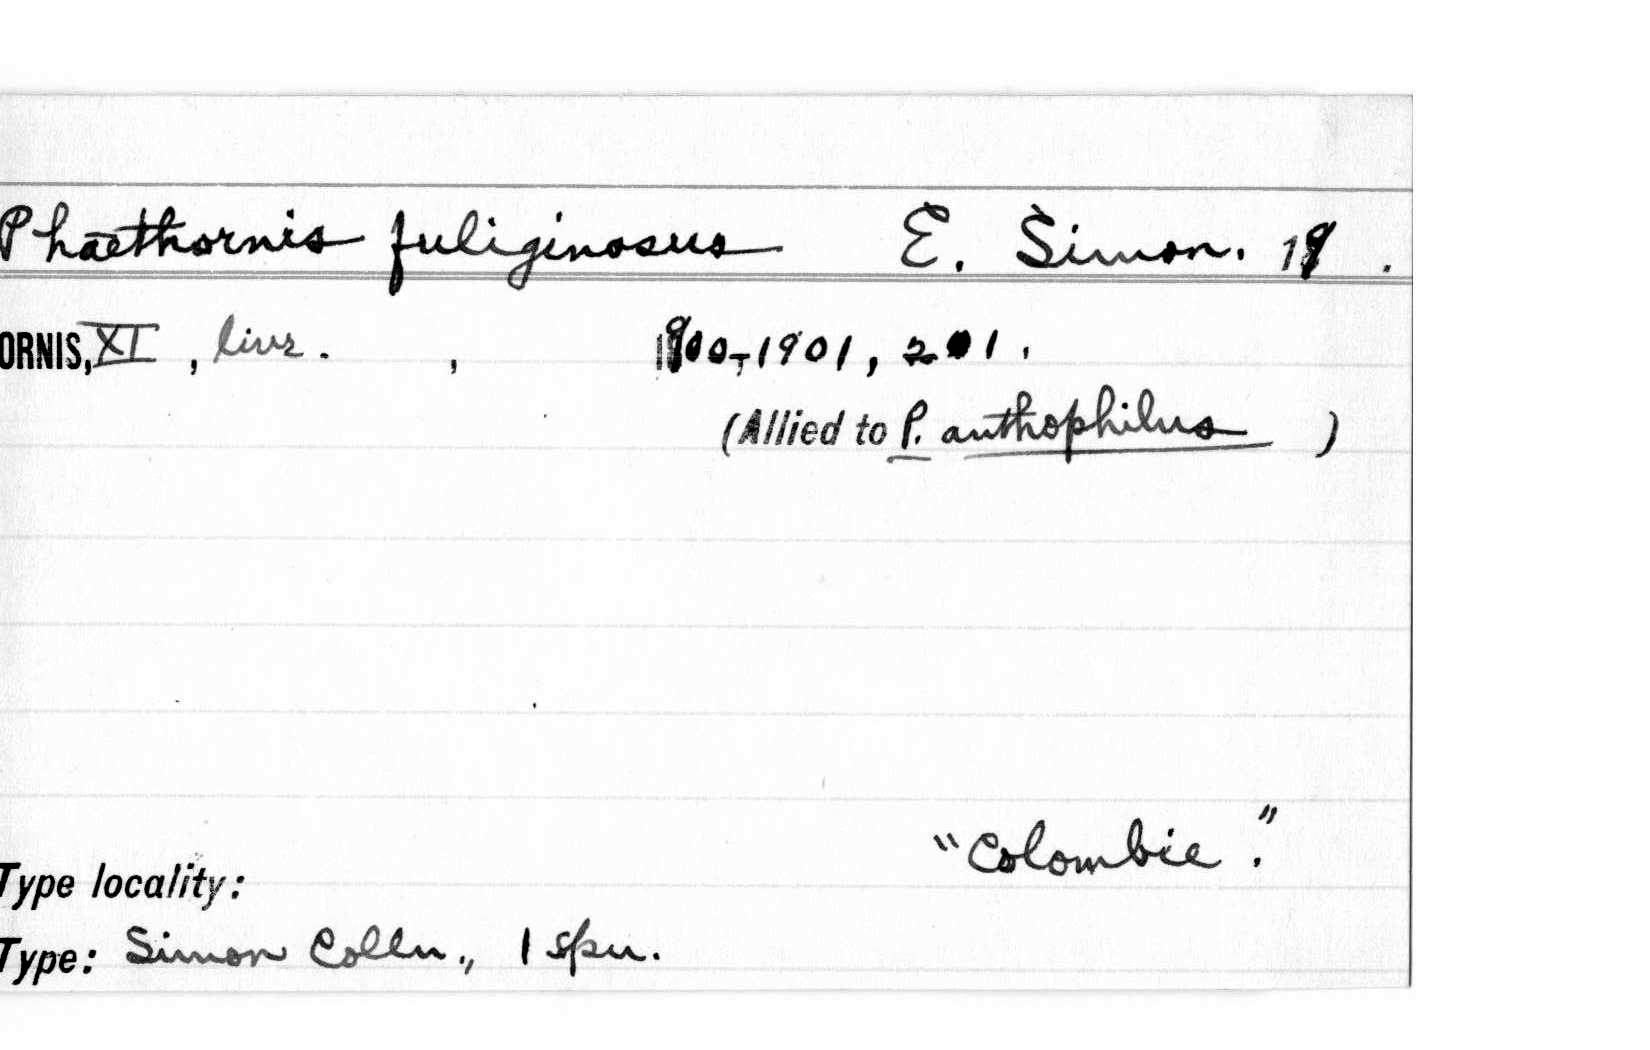 Phaethornis fuliginosus E. Simon. 19 .
ORNIS, XI , livr. , 1900-1901, 201.
(Allied to P. anthophilus )
"Colombie."
Type locality:
Type: Simon Colln., 1 spn.